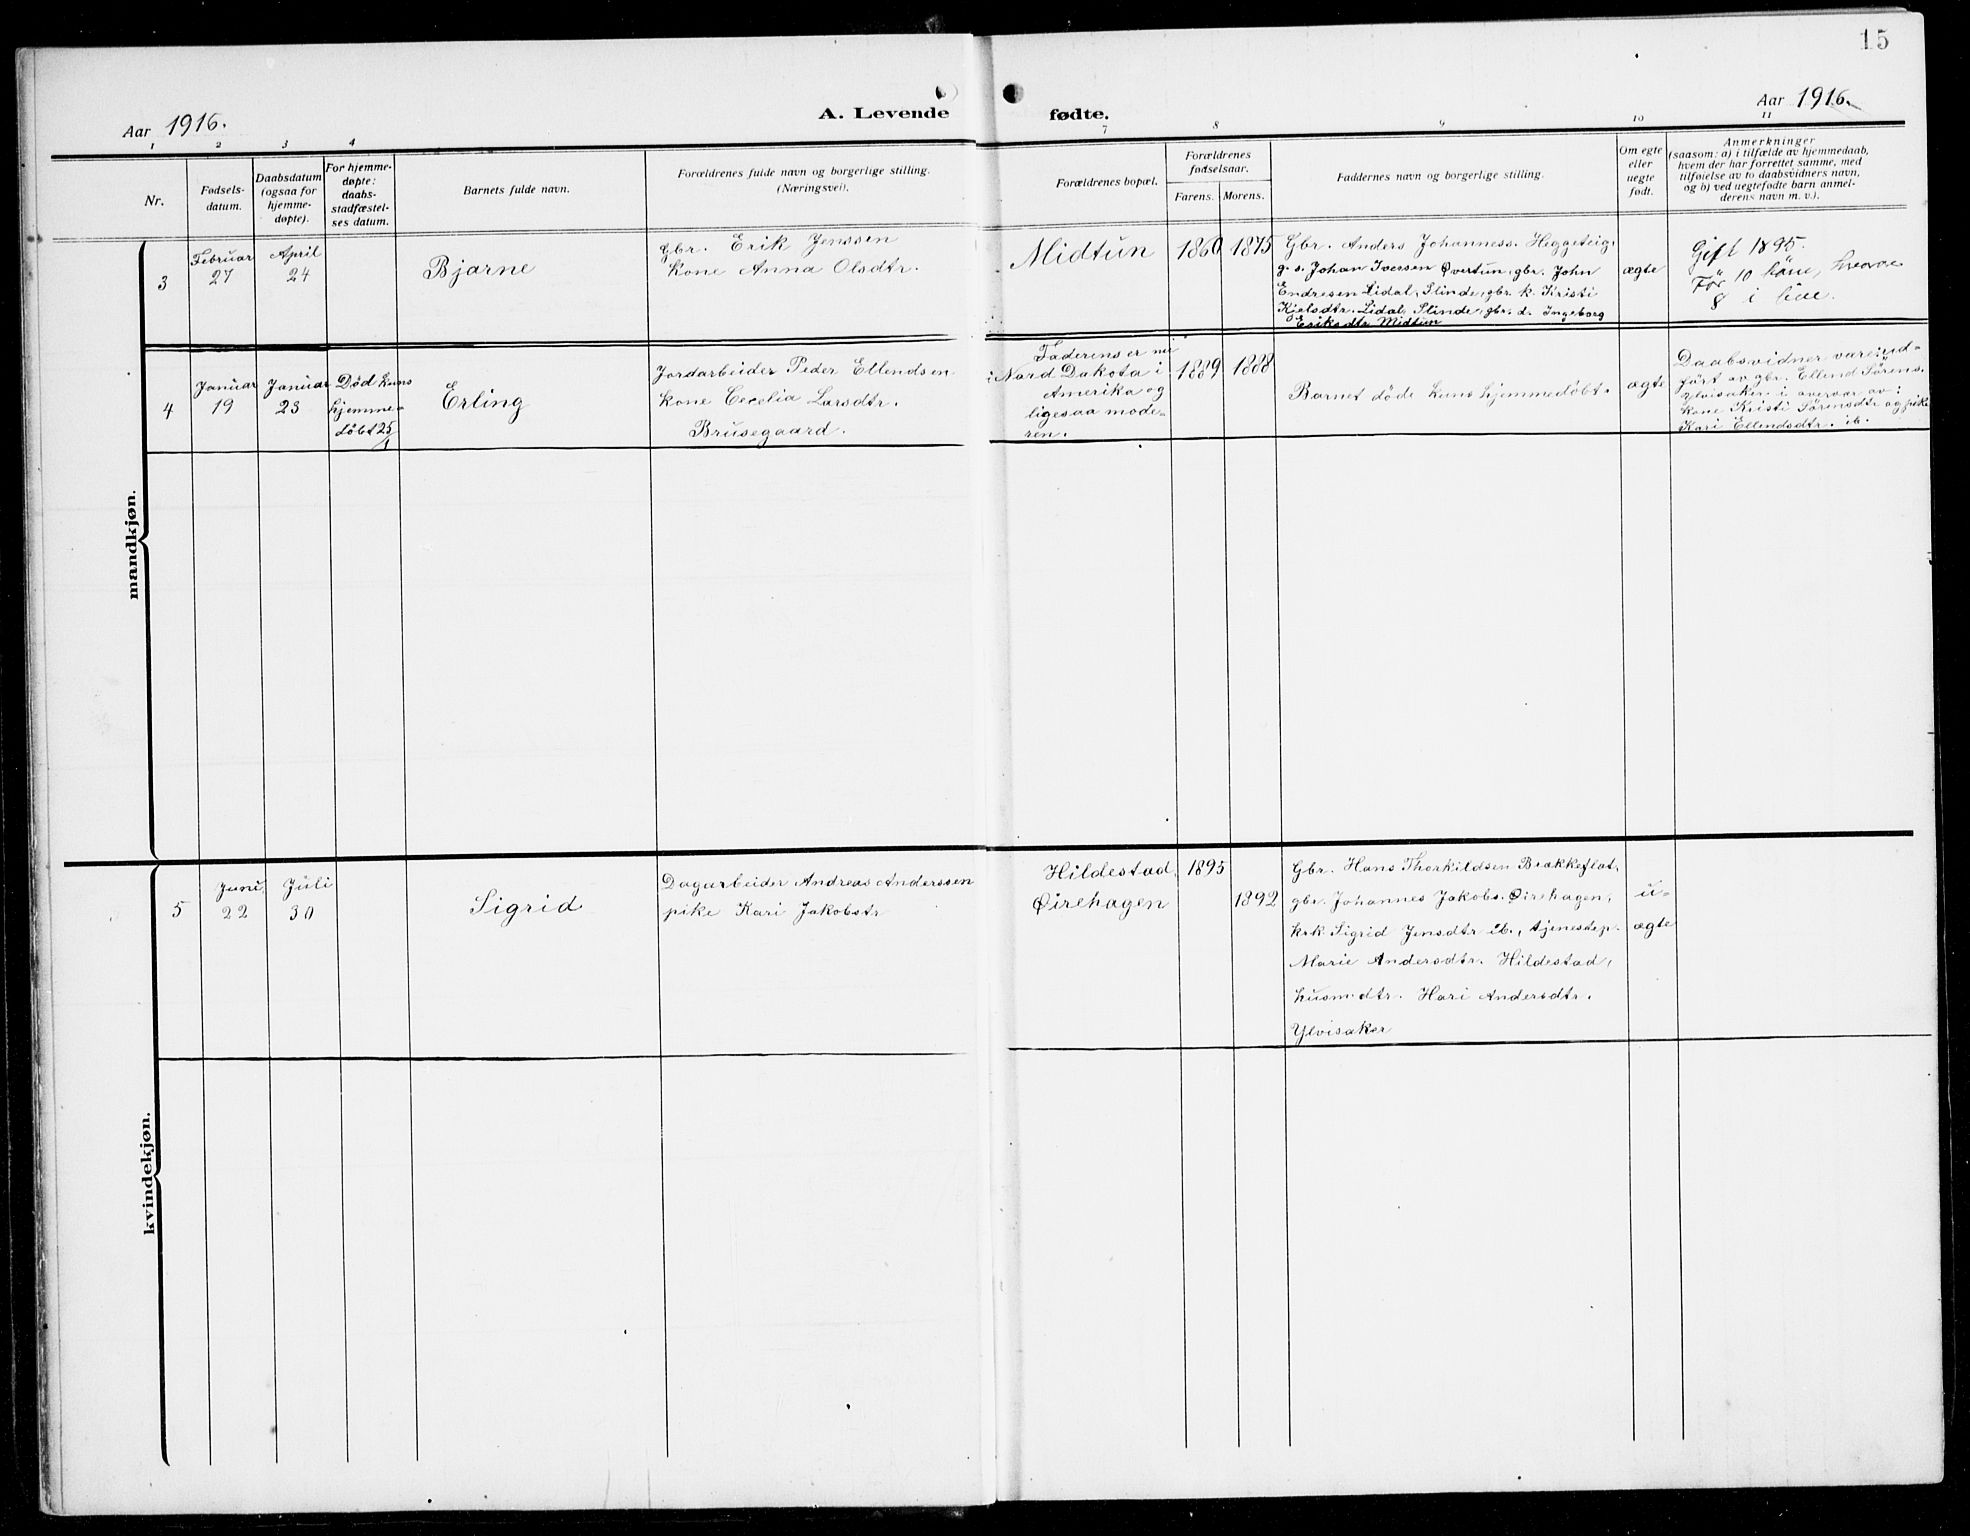 15
Aar 1916.
A. Levende
fødte.
Aar 1916.
1 2 3 4
7 8 9 10 11
Nr.
Fødsels-
datum.
Daabsdatum
(ogsaa for
hjemme-
døpte).
For hjemme-
døpte:
daabs-
stadfæstel-
ses datum.
Barnets fulde navn.
Forældrenes fulde navn og borgerlige stilling.
(Næringsvei).
Forældrenes bopæl.
Forældrenes
fødselsaar.
Farens. Morens.
Faddernes navn og borgerlige stilling.
Om egte
eller
uegte
født.
Anmerkninger
(saasom: a) i tilfælde av hjemmedaab,
hvem der har forrettet samme, med
tilføielse av to daabsvidners navn,
og b) ved uegtefødte barn anmel-
derens navn m. v.).
mandkjøn.
3
Februar
27
April
24
Bjarne
Gbr. Erik Jenssen
kone Anna Olsdtr.
Midtun
1860
1875
Gbr. Anders Johanness. Heggeteig,
g. s. Johan Iverssen Øvertun, gbr. John
Endresen Lidal, Slinde, gbr. k. Kristi
Kjelsdtr. Lidal, Slinde, gbr. d. Ingeborg
Eriksdtr. Midtun
ægte
Gift 1895.
Før 10 børn, hvorav
8 i live.
4
Januar
19
Januar
23
Død kuns
hjemme-
døbt 25/1
Erling
Jordarbeider Peder Ellendsen
kone Cecelia Larsdtr.
Brusegaard.
Faderens er nu
i Nord Dakota i
Amerika og
ligesaa mode-
ren.
1889
1888
Barnet døde kuns hjemmedøbt.
ægte
Daabsvidner være ud-
ført av gbr. Ellend Sörens.
Ylvisaker i overvær av:
kone Kristi Sörensdtr og pike
Kari Ellendsdtr. ib.
kvindekjøn.
5
Juni
22
Juli
30
Sigrid
Dagarbeider Andreas Anderssen
pike Kari Jakobstr
Hildestad,
Øirehagen
1895
1892
Gbr. Hans Thorkildsen Brækkeflat,
gbr. Johannes Jakobs. Øirehagen,
krk. Sigrid Jensdtr ib., tjenestep.
Marie Andersdtr. Hildestad,
husm. dtr. Kari Andersdtr.
Ylvisaker
u-
ægte